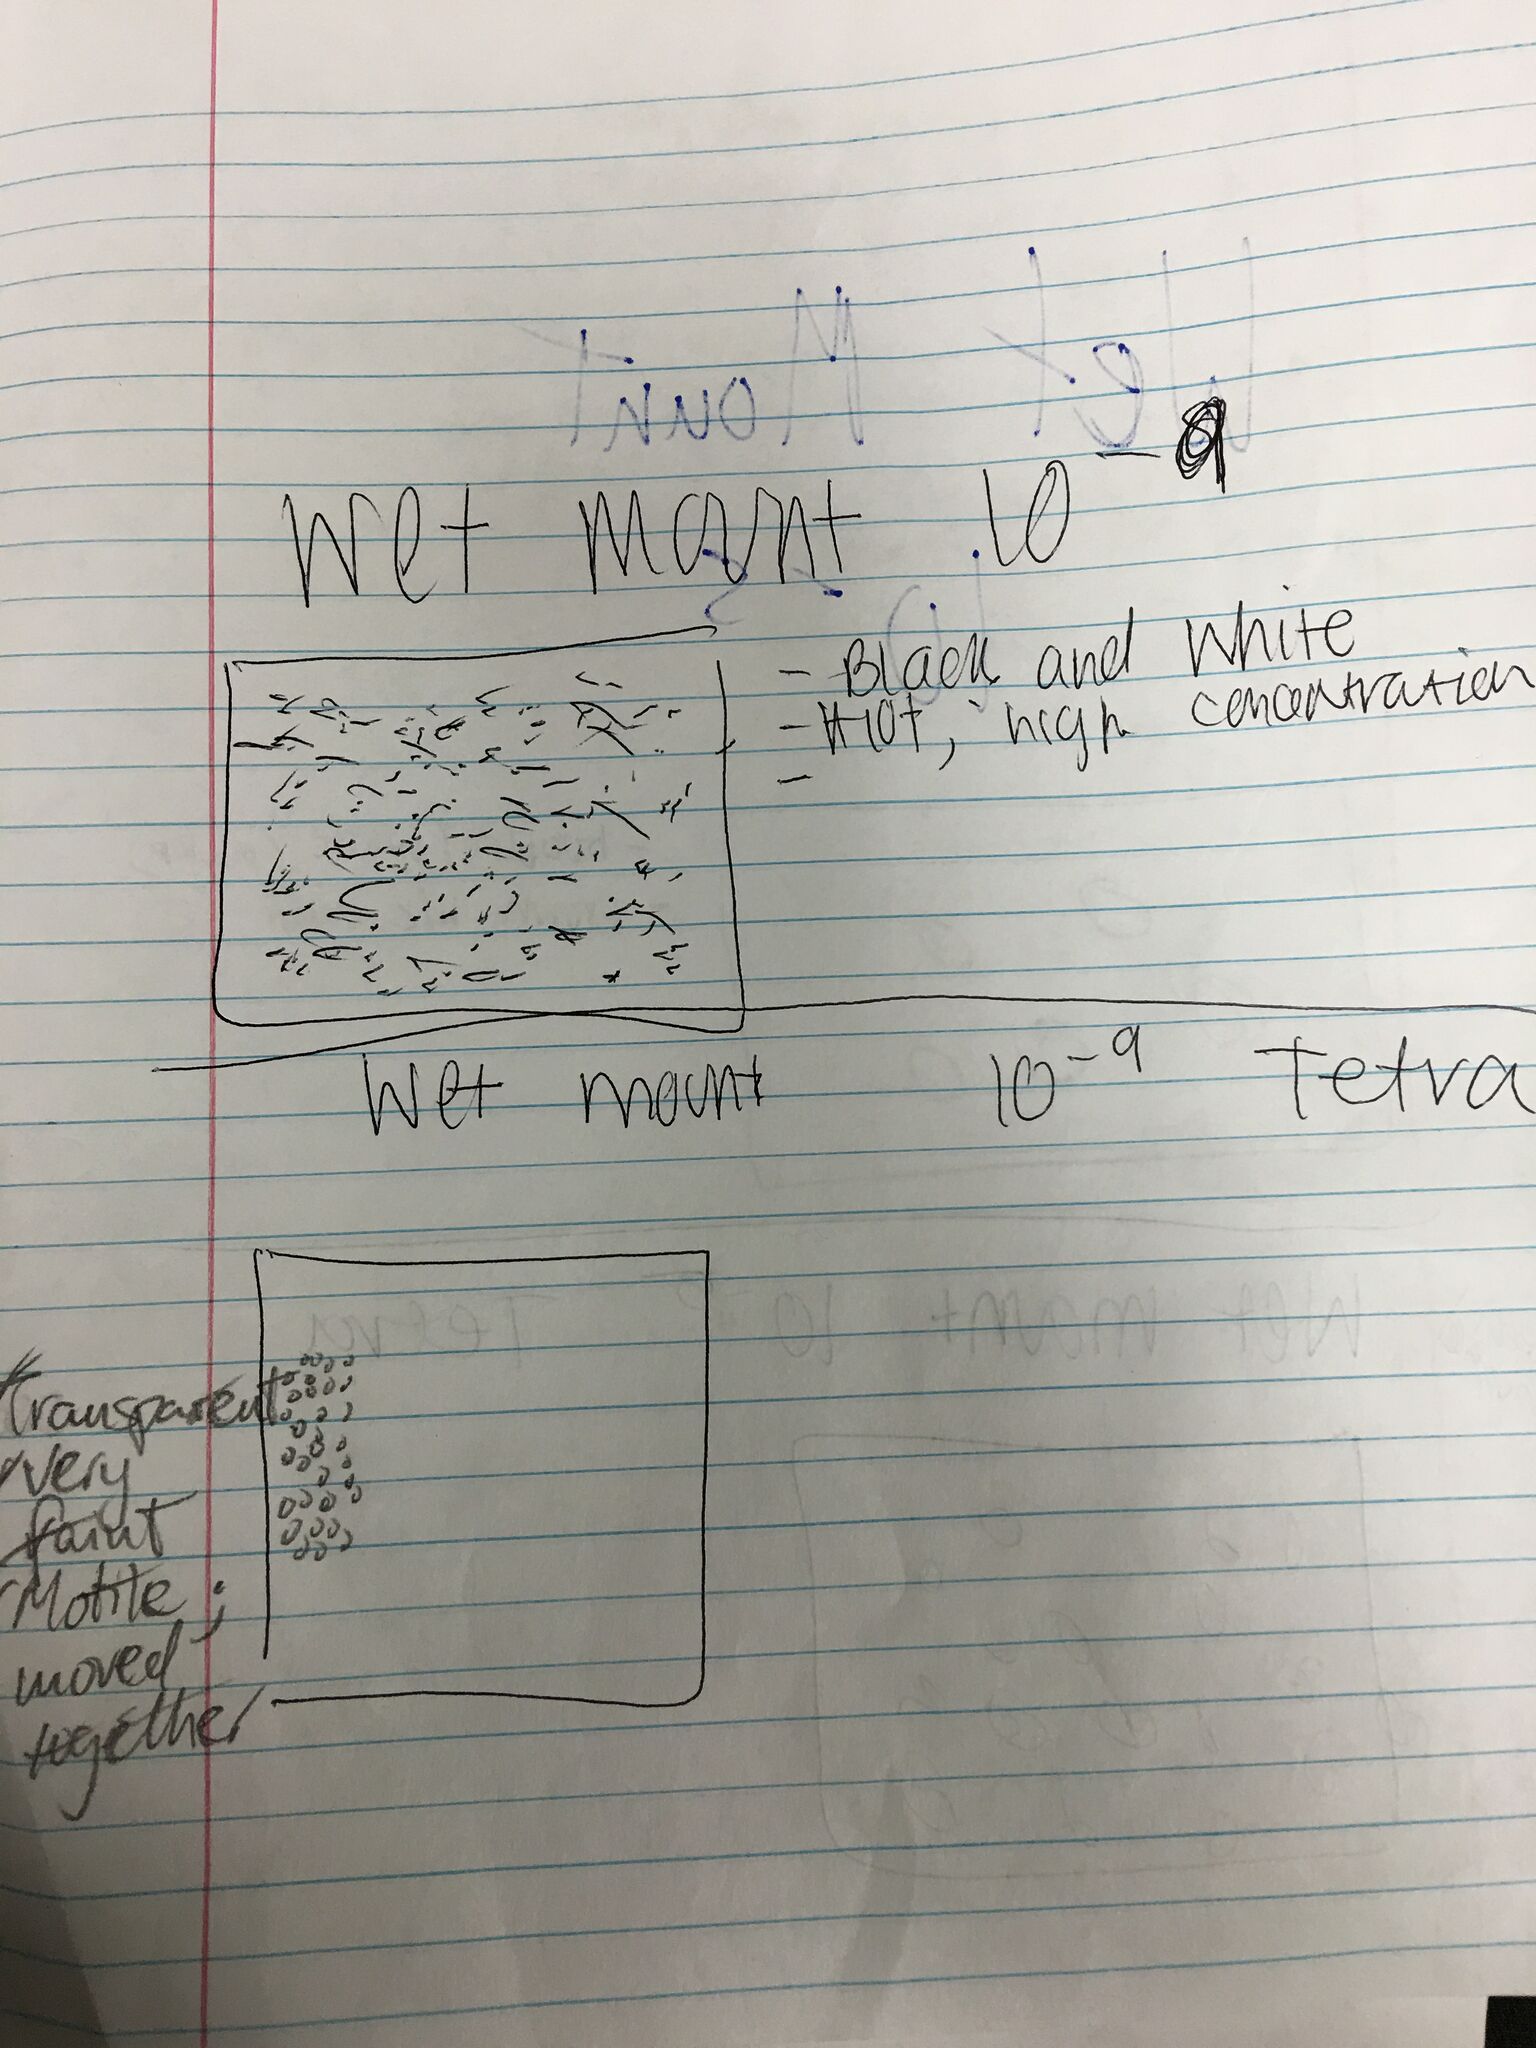 Wet mount 10⁻⁹
- Black and white
- Hot, high concentration
-
Wet mount 10⁻⁹ Tetra
Transparent
very
faint
Motile;
moved
together